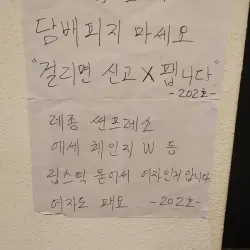 담배피지 마세요
"걸리면 신고 X 팹니다"
-202호-
레종 썬프레소
에쎄 체인지 W 등
립스틱 묻어서 여자인지 압니다.
여자도 패요 -202호-